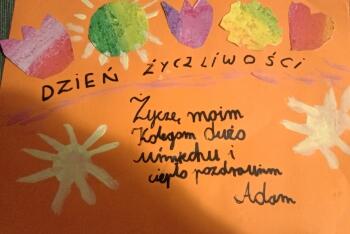 DZIEŃ ŻYCZLIWOŚCI
Życzę moim
Kolegom dużo
uśmiechu i
ciepło pozdrawiam
Adam